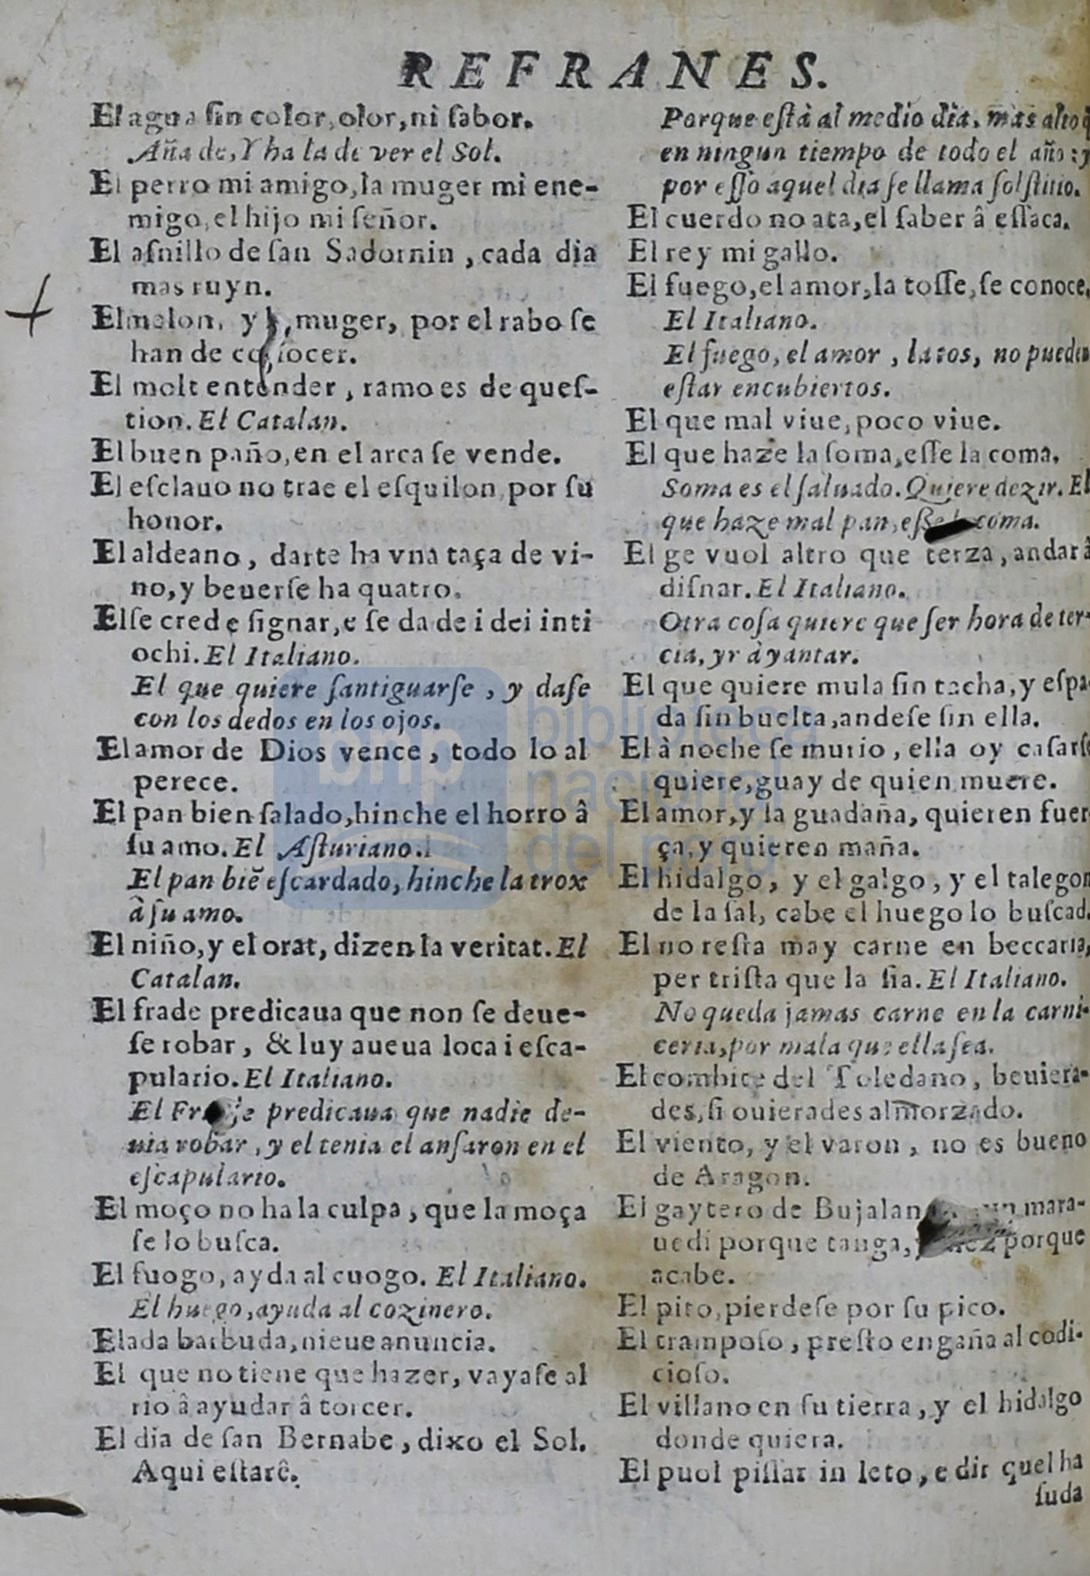 REFRANES.
El agua ſin color, olor, ni ſabor.
Añade, Y ha la de ver el Sol.
El perro mi amigo, la muger mi ene-
migo, el hijo mi ſeñor.
El aſnillo de ſan Sadornin, cada dia
mas ruyn.
El melon, y muger, por el rabo ſe
han de
El molt entender, ramo es de queſ-
tion. El Catalan.
El buen paño, en el arca ſe vende.
El eſclauo no trae el eſquilon por ſu
honor.
El aldeano, darte ha vna taça de vi-
no, y beuerſe ha quatro.
El ſe crede ſignar, e ſe da de i dei inti
ochi. El Italiano.
El que quiere ſantiguarſe, y daſe
con los dedos en los ojos.
El amor de Dios vence, todo lo al
perece.
El pan bien ſalado, hinche el horro â
ſu amo. El Aſturiano.
El pan biẽ eſcardado, hinche la trox
â ſu amo.
El niño, y el orat, dizen la veritat. El
Catalan.
El frade predicaua que non ſe deue-
ſe robar, & luy aueua loca i eſca-
pulario. El Italiano.
El predicaua que nadie de-
uia robar, y el tenia el anſaron en el
eſcapulario.
El moço no ha la culpa, que la moça
ſe lo buſca.
El fuogo, ayda al cuogo. El Italiano.
El huego, ayuda al cozinero.
Elada barbuda, nieue anuncia.
El que no tiene que hazer, vayaſe al
rio â ayudar â torcer.
El dia de ſan Bernabe, dixo el Sol.
Aqui eſtarê.
Porque eſtà al medio dia, màs alto q
en ningun tiempo de todo el año: y
por eſſo aquel dia ſe llama ſolſtitio.
El cuerdo no ata, el ſaber â eſſaca.
El rey mi gallo.
El fuego, el amor, la toſſe, ſe conoce.
El Italiano.
El fuego, el amor, la tos, no pueden
eſtar encubiertos.
El que mal viue, poco viue.
El que haze la ſoma, eſſe la coma.
Soma es el ſaluado. Quiere dezir. El
que haze mal pan, coma.
El ge vuol altro que terza, andar à
diſnar. El Italiano.
Otra coſa quiere que ſer hora de ter-
cia, yr à yantar.
El que quiere mula ſin tacha, y eſpa-
da ſin buelta, andeſe ſin ella.
El à noche ſe murio, ella oy caſarſe
quiere, guay de quien muere.
El amor, y la guadaña, quieren fuer
ça, y quieren maña.
El hidalgo, y el galgo, y el talegon
de la ſal, cabe el huego lo buſcad.
El no reſta may carne en beccaria,
per triſta que la ſia. El Italiano.
No queda jamas carne en la carni-
ceria, por mala que ella ſea.
El combite del Toledano, beuiera-
des, ſi ouierades almorzado.
El viento, y el varon, no es bueno
de Aragon.
El gaytero de mara-
uedi porque tanga, porque
acabe.
El pito, pierdeſe por ſu pico.
El trampoſo, preſto engaña al codi-
cioſo.
El villano en ſu tierra, y el hidalgo
donde quiera.
El puol piſſar in leto, e dir quel ha
ſuda
bnp
biblioteca
nacional
del perú